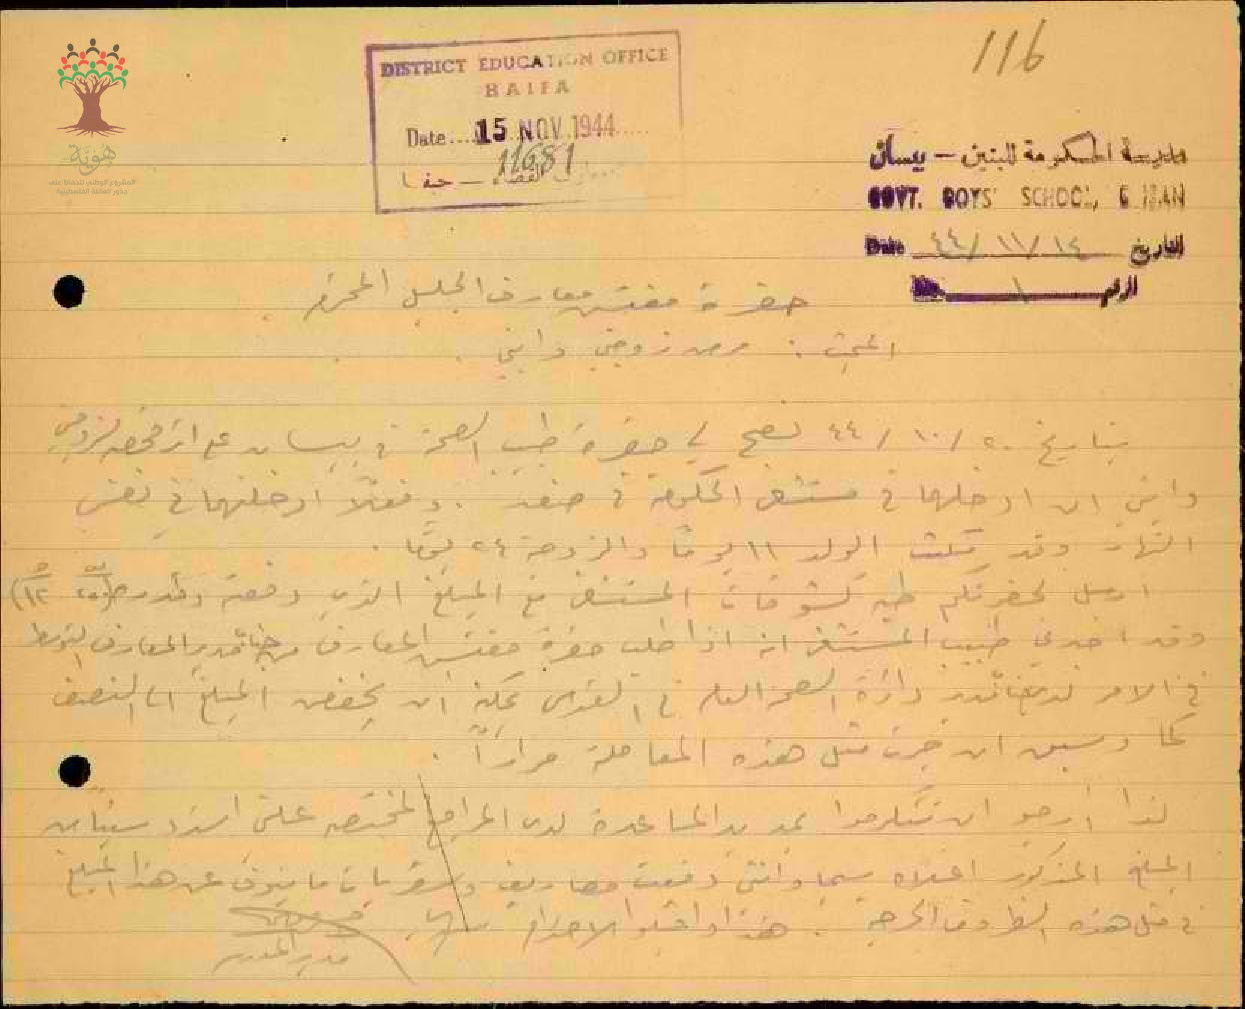 116
DISTRICT EDUCATION OFFICE
HAIFA
Date 15 NOV 1944
11681
معارف القضاء — حيفا
هويّة
المشروع الوطني للحفاظ على
جذور العائلة الفلسطينية
مدرسة الحكومة للبنين - بيسان
GOVT. BOYS' SCHOOL, BEISAN
Date ٤٤/١١/١٤ التاريخ
الرقم
حضرة مفتش معارف الجليل المحترم
المبحث : مرض زوجتي وابني .
بتاريخ ٢٠/١٠/٤٤ نصح لي حضرة طبيب الصحة في بيسان على اثر فحصه لزوجتي
وابني ان ادخلهما في مستشفى الحكومة في صفد . وفعلاً ادخلتهما في نفس
النهار وقد مكث الولد ١١ يوماً والزوجة ٢٤ يوماً .
ارسل لحضرتكم طيه كشوفات المستشفى مع المبلغ الذي دفعته وقدره
وقد اخبرني طبيب المستشفى انه اذا طلب حضرة مفتش المعارف من جناب مدير المعارف التوسط
في الامر لدى دائرة الصحة العامة في القدس يمكن ان يخفض المبلغ الى النصف
كما وسبق ان جرت مثل هذه المعاملة مراراً .
لذا أرجو ان تتكرموا بمد يد المساعدة لدى المراجع المختصة على استرداد
المبلغ المذكور اعلاه سيما وانني دفعت مصاريف وسفريات ما ينوف عن هذا المبلغ
في مثل هذه الظروف الحرجة . هذا واقبلوا الاحترام
مدير المدرسة